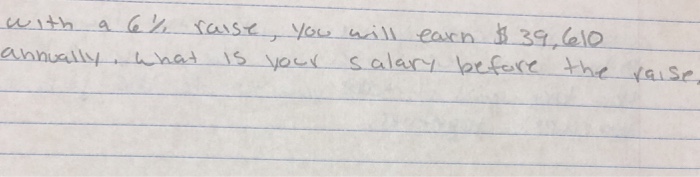 with a 6% raise, you will earn $39,610
annually. what is your salary before the raise.